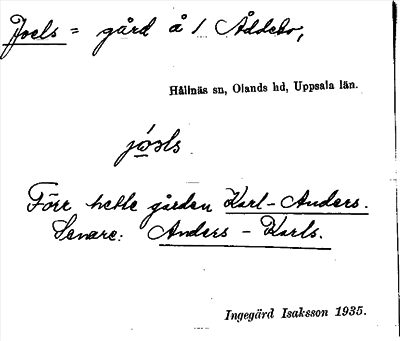 Joels = gård å 1 Åddebo,
Hållnäs sn, Olands hd, Uppsala län.
jo̲´əls
Förr hette gården Karl-Anders.
Senare: Anders - Karls.
Ingegärd Isaksson 1935.